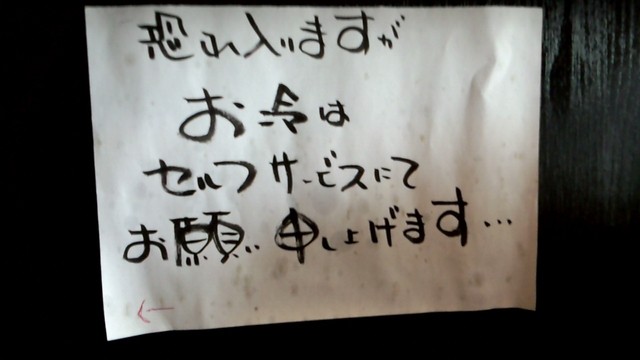 恐れ入りますが
お冷は
セルフサービスにて
お願い申し上げます…
←